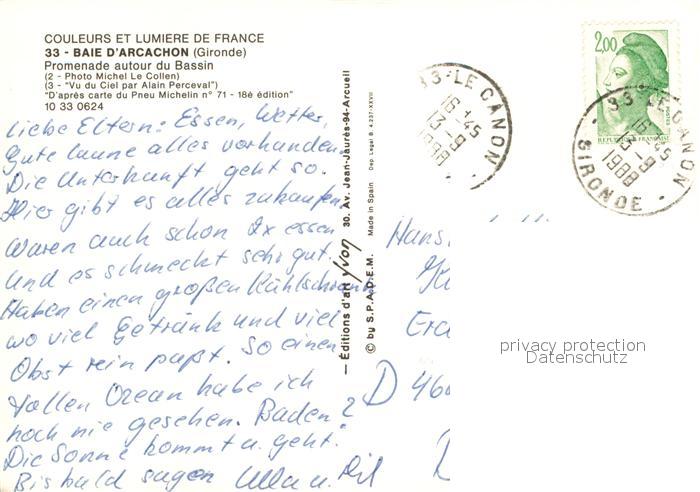 COULEURS ET LUMIERE DE FRANCE
33 - BAIE D'ARCACHON (Gironde)
Promenade autour du Bassin
(2 - Photo Michel Le Collen)
(3 - "Vu du Ciel par Alain Perceval")
"D'après carte du Pneu Michelin n° 71 - 18è édition"
10 33 0624
Liebe Eltern: Essen, Wetter,
gute Laune alles vorhanden.
Die Unterkunft geht so.
Hier gibt es alles zu kaufen
waren auch schon 2x essen
und es schmeckt sehr gut.
Haben einen großen Kühlschrank
wo viel Getränk und viel
Obst rein paßt. So einen
tollen Ozean habe ich
noch nie gesehen. Baden?
Die Sonne kommt u. geht.
Bis bald sagen Ulla u.
— Éditions d'art yvon 30. Av. Jean-Jaurès-94-Arcueil
© by S.P.A.D.E.M. Made in Spain Dep. Legal B. 4.237-XXVII
33-LE CANON
16-45
13-9
1988
2,00
REPUBLIQUE FRANÇAISE
33-LE CANON
16-45
13-9
1988
GIRONDE
Hans.
D 460
privacy protection
Datenschutz